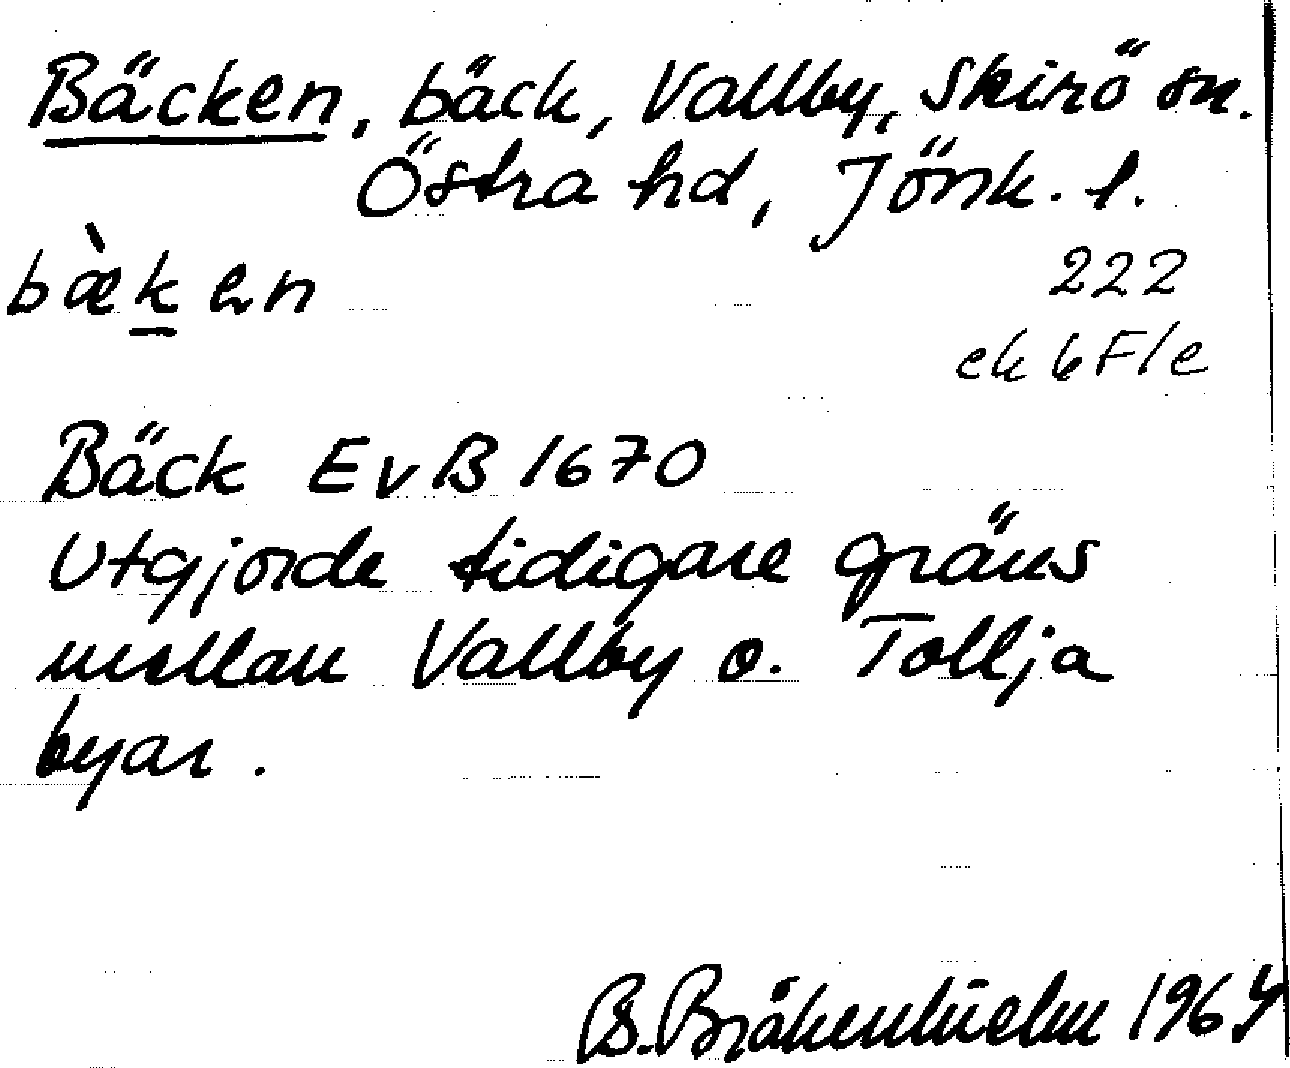 Bäcken, bäck, Vallby, Skirö sn.
Östra hd, Jönk. l.
bæ̀ken
222
ek 6 F/e
Bäck EvB 1670
Utgjorde tidigare gräns
mellan Vallby o. Tollja
byar.
B. Bråkenhielm 1964